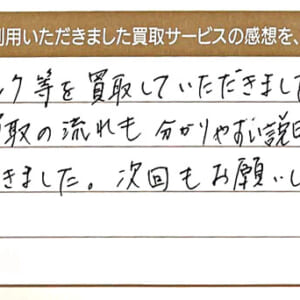 利用いただきました買取サービスの感想を、
ク等を買取していただきました
取の流れも分かりやすい説明
きました。次回もお願いし